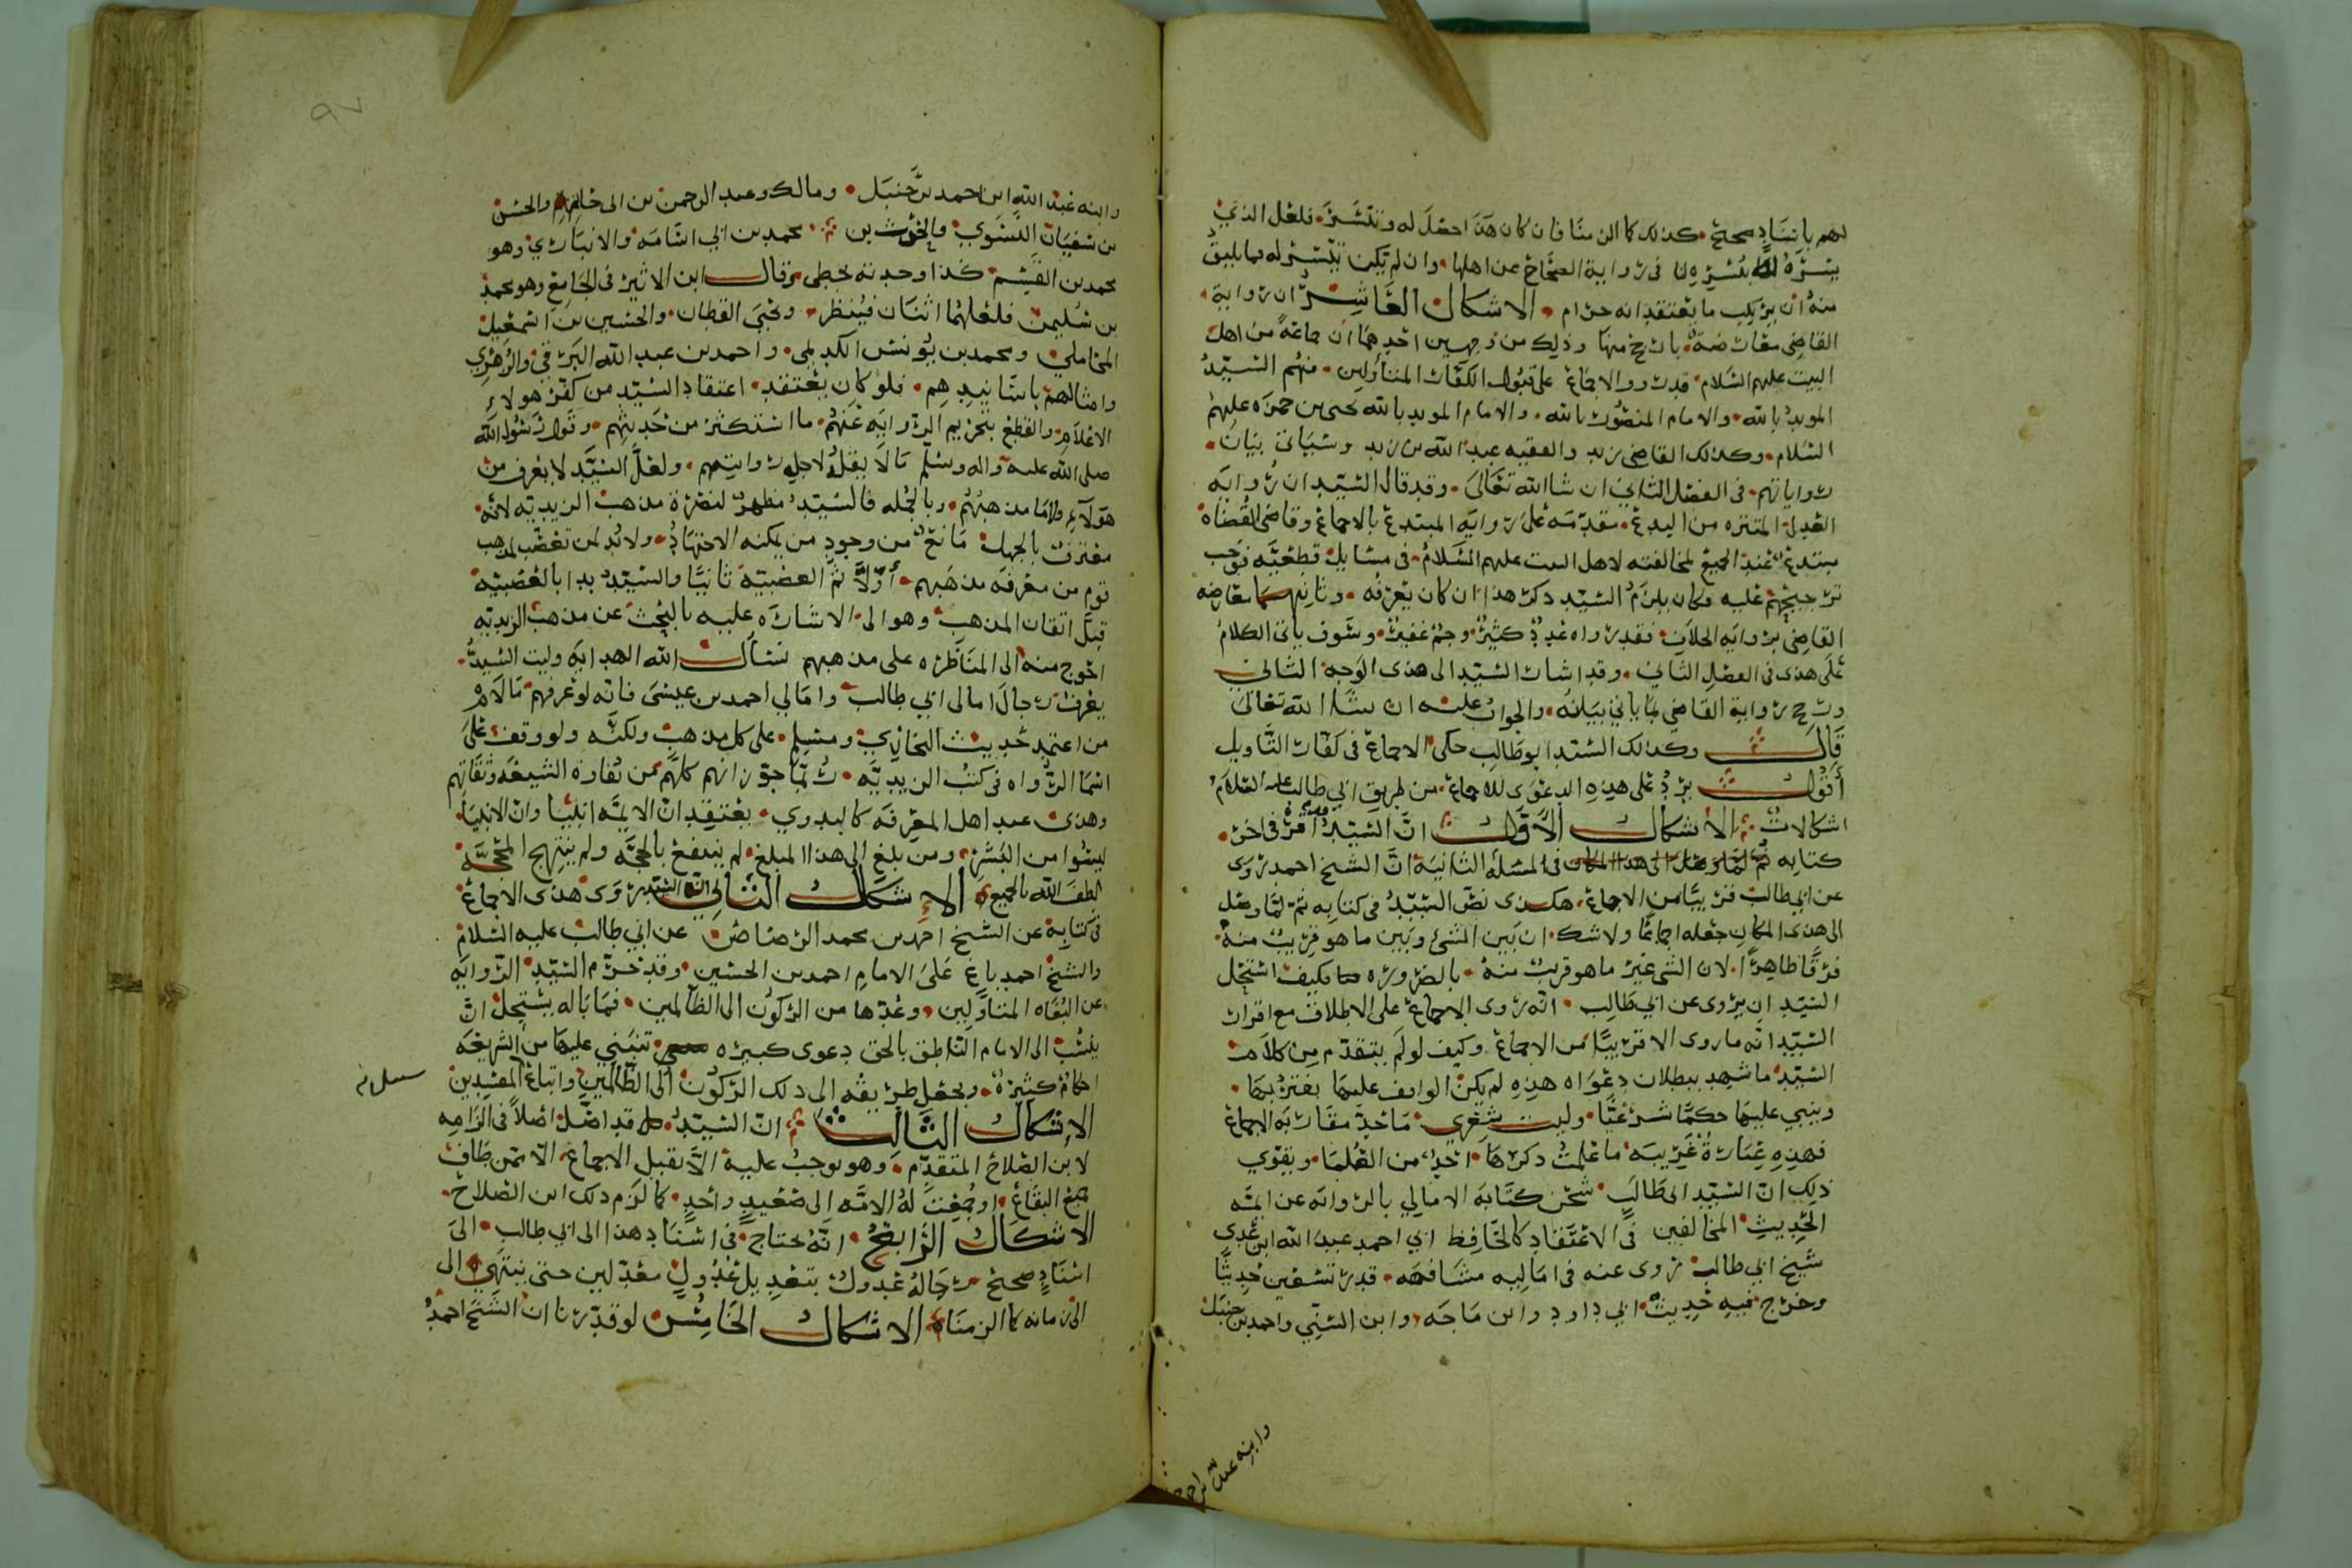 لهم باسناد صحيح كذلك كما الزمنا فان كان هذا احفل له وتيسر فلعل الذي
يسره له ييسره لنا في رواية الصحاح عن اهلها وان لم يكن تيسر له فما يليق
منه ان يرتكب ما يعتقد انه حرام الاشكال العاشر ان رواية
القاضي معارضة بارجح منها وذلك من وجهين احدهما ان جماعة من اهل
البيت عليهم السلام قد رووا الاجماع على قبول الكفار المتأولين فمنهم السيد
المويد بالله والامام المنصور بالله والامام المويد بالله يحيى بن حمزه عليهم
السلام وكذلك القاضي زيد والفقيه عبد الله بن زيد وسياتي بيان
رواياتهم في الفصل الثاني ان شا الله تعالى وقد قال السيد ان رواية
العدل المتنزه من البدع مقدمه على رواية المبتدع بالاجماع وقاضي القضاة
مبتدع عند الجميع لمخالفته لاهل البيت عليهم السلام في مسايل قطعيه فوجب
ترجيحهم عليه وكان يلزم السيد ذكر هذا ان كان يعرفه وثانيهما معارضه
القاضي برواية الخلاف فقد رواه عدد كثير وجم غفير وسوف ياتي الكلام
على هذى في الفصل الثاني وقد اشار السيد الى هذى الوجه الثاني
ورجح رواية القاضي بما ياتي بيانه والجواب عليه ان شا الله تعالى
قال وكذلك السيد ابو طالب حكى الاجماع في كفار التاويل
أقول يرد على هذه الدعوى للاجماع من طريق ابي طالب عليه السلام
اشكالات الاشكال الاول ان السيد قد اقر في اخر
كتابه في المسئلة الثانية ان الشيخ احمد روى
عن ابي طالب قريبا من الاجماع هكذى نص السيد في كتابه ثم لما وصل
الى هذى المكان جعله اجماعا ولا شك ان بين الشئ وبين ما هو قريب منه
فرقا ظاهرا لان الشي غير ما هو قريب منه بالضروره فكيف استحل
السيد ان يروى عن ابي طالب انه روى الاجماع على الاطلاق مع اقرار
السيد انه ما روى الا قريبا من الاجماع وكيف لو لم يتقدم من كلام
السيد ما شهد ببطلان دعواه هذه لم يكن الواقف عليها يغتر بها
ويبني عليها حكما شرعيا وليت شعري ما حد مقاربة الاجماع
فهذه عبارة غريبه ما علمت ذكرها احد من العلما ويقوي
ذلك ان السيد ابي طالب شحن كتابه الامالي بالرواية عن ايمه
الحديث المخالفين في الاعتقاد كالحافظ ابي احمد عبد الله ابن عدي
شيخ ابي طالب روى عنه في اماليه مشافهه قدر تسعين حديثا
وخرج فيه حديث ابي داود وابن ماجه وابن السني واحمد بن حنبل
وابنه عبد الله بن احمد
وابنه عبد الله ابن احمد بن حنبل ومالك وعبد الرحمن بن ابي حاتم والحسن
بن سفيان النسوي والحرث بن محمد بن ابي اسامه والانباري وهو
محمد بن القسم كذا وجدته بخطي وقال ابن الاثير في الجامع وهو محمد
بن سليمن فلعلهما اثنان فينظر ويحيى القطان والحسين بن اسمعيل
المحاملي ومحمد بن يونس الكديمي واحمد بن عبد الله البرقي والزهري
وامثالهم باسانيدهم فلو كان يعتقد اعتقاد السيد من كفر هولاء
الاعلام والقطع بتحريم الروايه عنهم ما استكثر من حديثهم وقول رسول الله
صلى الله عليه واله وسلم ما لا يقله لاجل روايتهم ولعل السيد لا يعرف من
هولاء ولا ما مذهبهم وبالجمله فالسيد مظهر لنصرة مذهب الزيديه لانه
معترف بالجهل مانع من وجود من يمكنه الاجتهاد ولا بد لمن تعصب لمذهب
قوم من معرفة مذهبهم أولا ثم العصبيه ثانيا والسيد بدا بالعصبيه
قبل اتقان المذهب وهو الى الاشاره عليه بالبحث عن مذهب الزيديه
احوج منه الى المناظره على مذهبهم نسأل الله الهدايه وليت السيد
يعرف رجال امالي ابي طالب وامالي احمد بن عيسى فانه لو عرفهم ما لام
من اعتمد حديث البخاري ومسلم على كل مذهب ولكنه ولو وقف على
اسما الرواه في كتب الزيديه ربما جوز انهم كلهم من الشيعه وثقاتهم
وهذى عند اهل المعرفه كالبدوي يعتقد ان الايمه انبيا وان الانبيا
ليسوا من البشر ومن بلغ الى هذا المبلغ لم ينتفع بالحجه ولم ينتهج المحجه
لطف الله بالجميع الاشكال الثاني ان السيد روى هذى الاجماع
في كتابه عن الشيخ احمد بن محمد الرصاص عن ابي طالب عليه السلام
والشيخ احمد باغ على الامام احمد بن الحسين وقد حرم السيد الروايه
عن البغاه المتاولين وعدها من الركون الى الظالمين فما باله يستحل ان
ينسب الى الامام الناطق بالحق دعوى كبيره تنبني عليها من الشريعه
احكام كثيره ويجعل طريقه الى ذلك الركون الى الظالمين واتباع المفسدين
الاشكال الثالث ان السيد قد اصل اصلا في الزامه
لابن الصلاح المتقدم وهو يوجب عليه الا يقبل الاجماع الا ممن طاف
جميع البقاع او جمعت له الامه الى صعيد واحد كما لزم ذلك ابن الصلاح
الاشكال الرابع انه يحتاج في اسناد هذا الى ابي طالب الى
اسناد صحيح رجاله عدول بتعديل عدول معدلين حتى ينتهي الى
الى زمانه كما الزمناه الاشكال الخامس لو قدرنا ان الشيخ احمد